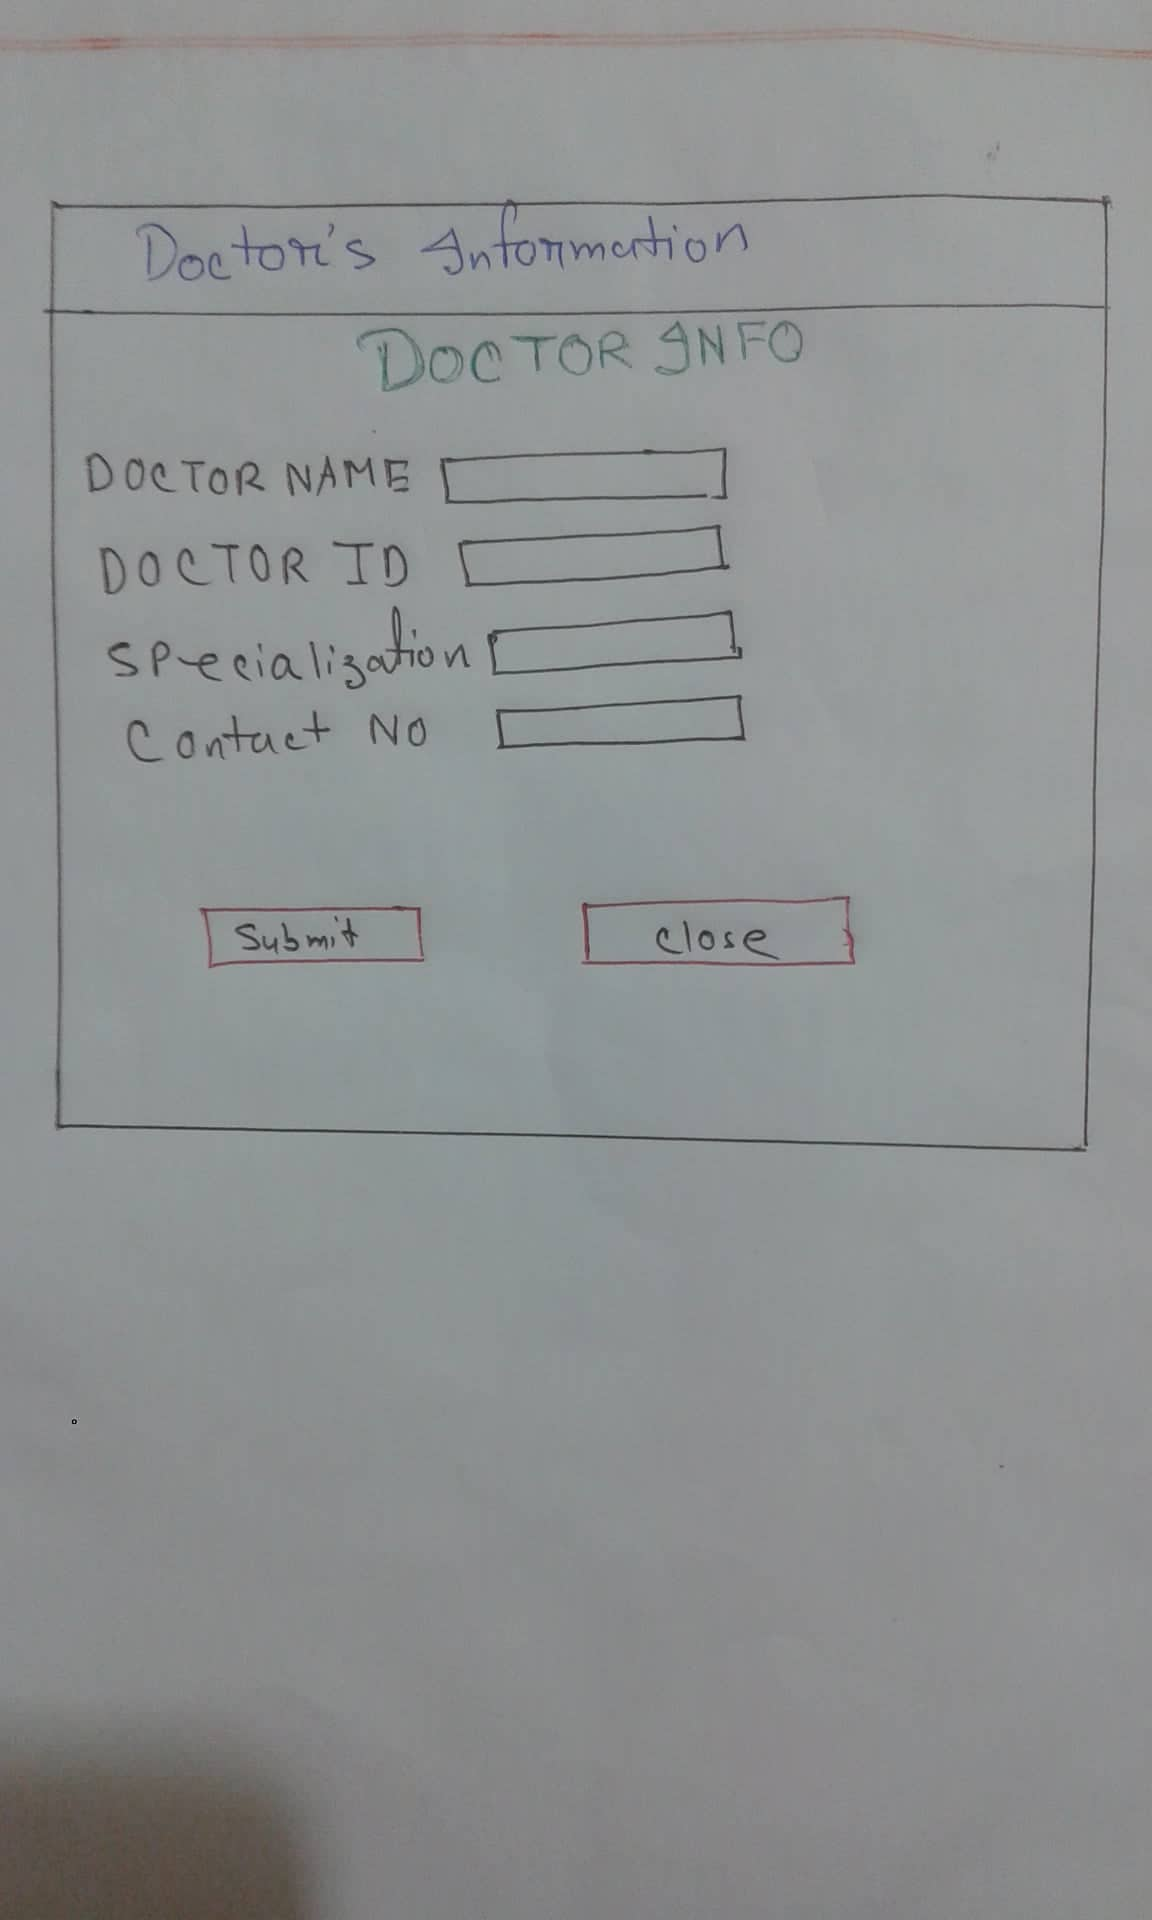 Doctor's Information
DOCTOR INFO
DOCTOR NAME
DOCTOR ID
Specialization
Contact No
Submit
close